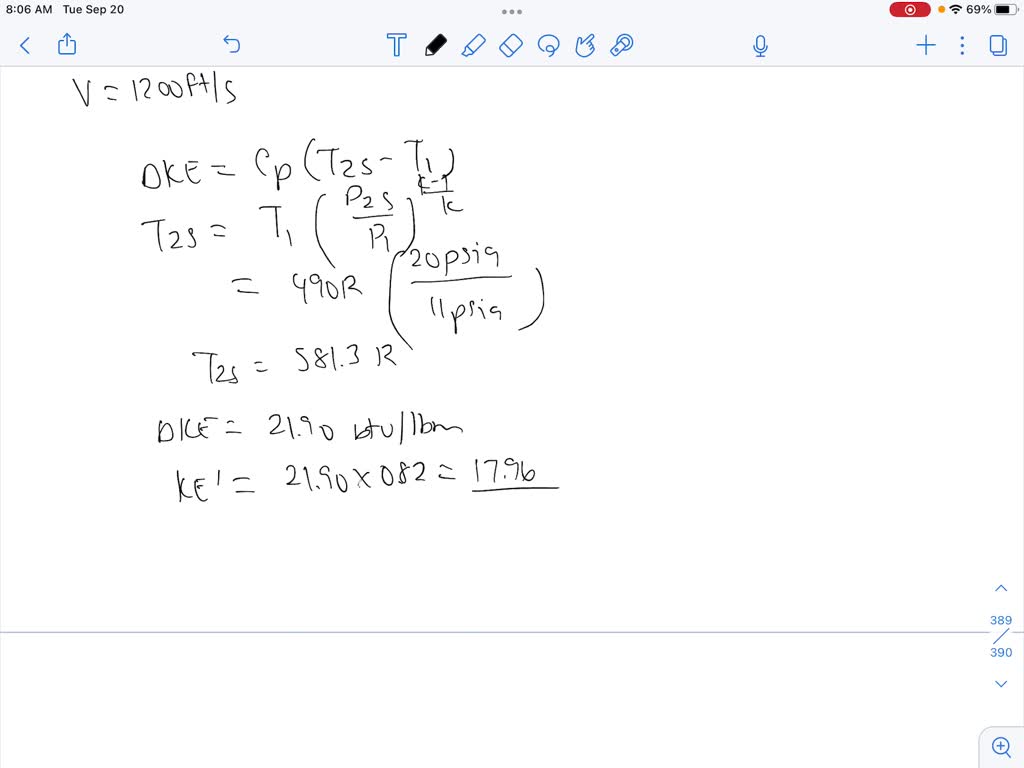 8:06 AM Tue Sep 20
69%
V = 1200 ft/s
DKE = Cp (T2s - T1)
T2s = T1 (P2s/P1)^(k-1/k)
= 490R (20psia/11psia)
T2s = 581.3 R
DKE = 21.90 btu/lbm
KE' = 21.90 x 082 = 17.96
389
390